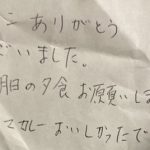 ン ありがとう
ございました。
明日の夕食 お願いしま
てカレーおいしかったで